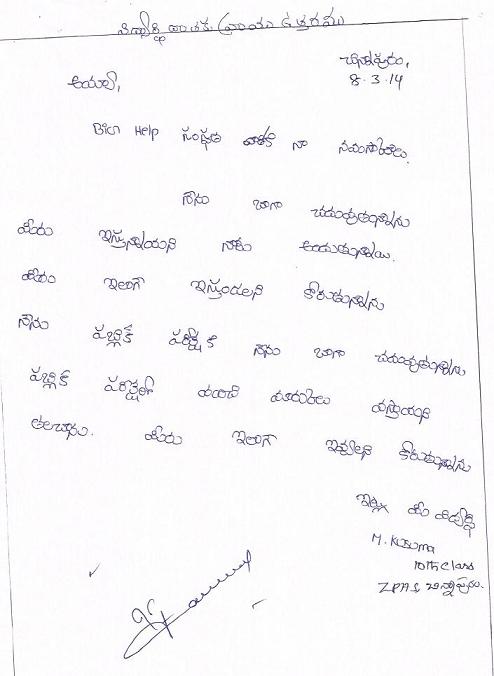 విద్యార్థి వ్రాయు ఉత్తరము
చిన్నాపురం,
8.3.14
అయ్యా,
Big Help సంస్థకు నా నమస్కారాలు.
నేను బాగా చదువుతున్నాను
మీరు ఇస్తున్నాయని నాకు అందుతున్నాయి.
మీరు ఇలాగే ఇస్తుండాలని కోరుతున్నాను
నేను పబ్లిక్ పరీక్ష కి నేను బాగా చదువుతున్నాను
పబ్లిక్ పరీక్షలో మంచి మార్కులు వస్తాయని
తలచాను. మీరు ఇలాగా ఇవ్వాలని కోరుతున్నాను
ఇట్లు మీ విద్యార్థి
M. Kusuma
10th class
ZPHS చిన్నాపురం.